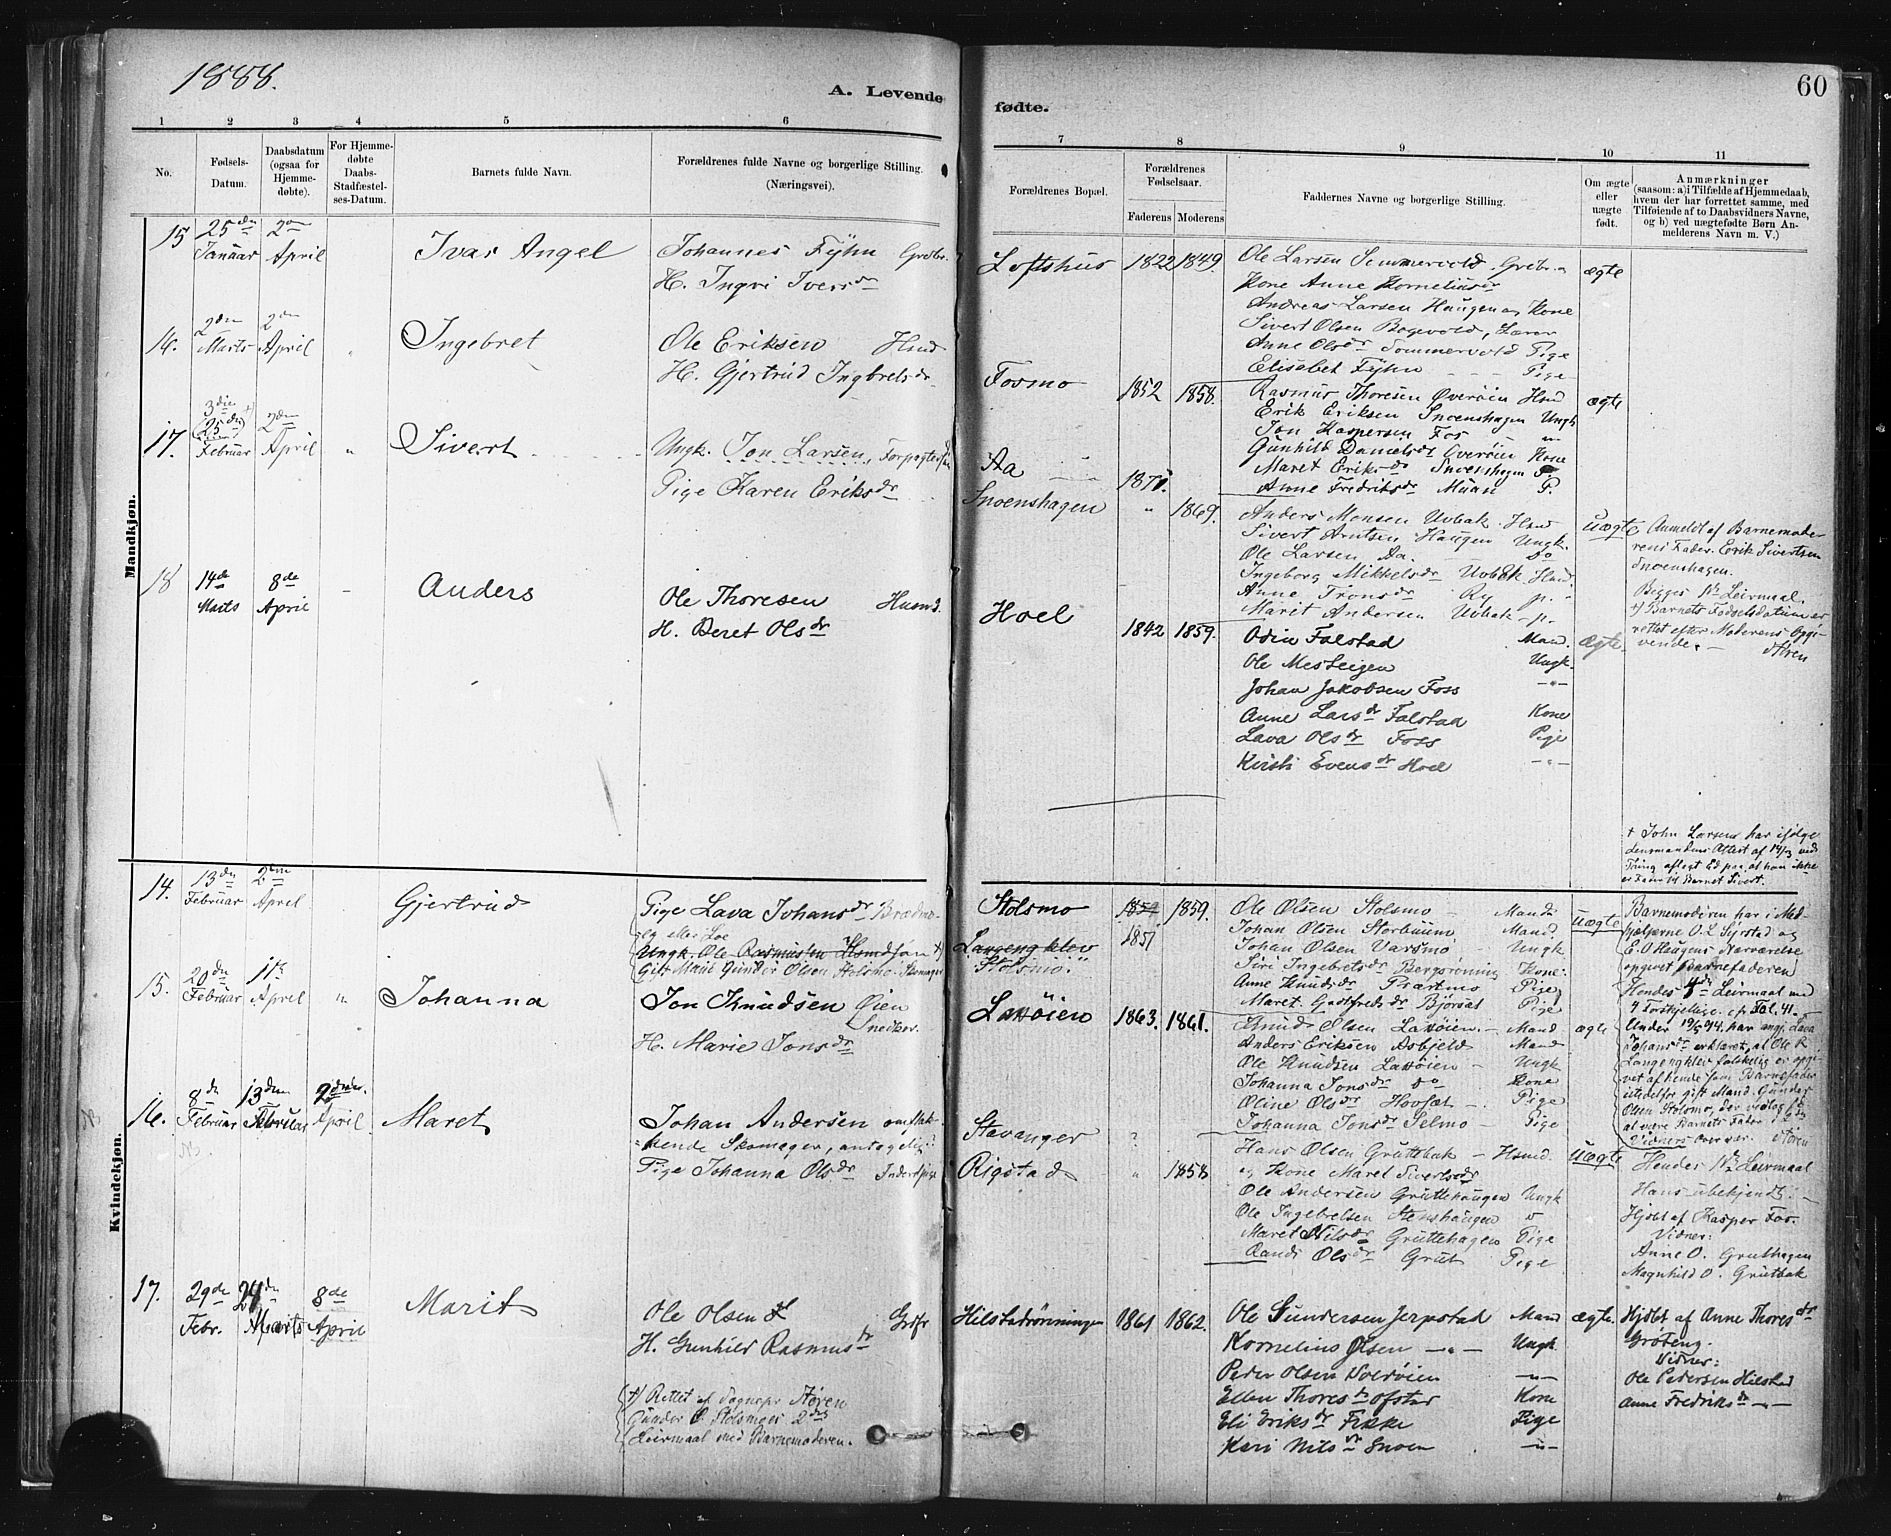 1888.
A. Levende
fødte.
60
1 2 3 4 5 6
7 8 9 10 11
No.
Fødsels-
Datum.
Daabsdatum
(ogsaa for
Hjemme-
døbte).
For Hjemme-
døbte
Daabs-
Stadfæstel-
ses-Datum.
Barnets fulde Navn.
Forældrenes fulde Navne og borgerlige Stilling.
(Næringsvei).
Forældrenes Bopæl.
Forældrenes
Fødselsaar.
Faderens Moderens
Faddernes Navne og borgerlige Stilling.
Om ægte
eller
uægte
født.
Anmærkninger
(saasom: a) i Tilfælde af Hjemmedaab,
hvem der har forrettet samme, med
Tilføiende af to Daabsvidners Navne,
og b) ved uægtefødte Børn An-
melderens Navn m. V.)
Mandkjøn.
15
25de
Januar
2den
April
Ivar Angel
Johannes Fyhn Grdbr.
H. Ingri Iversdr
Loftshus
1822 1849.
Ole Larsen Sommervold Grdbr. og
Kone Anne Korneliusdr
Andreas Larsen Haugen og Kone
Sivert Olsen Bogevold, Lærer
Anne Olsdr Sommervold Pige
Elisabet Fyhn Pige
ægte
16.
2den
Marts
2den
April
Ingebret
Ole Eriksen Hsmd
H. Gjertrud Ingbretsdr
Fosmo
1852 1858.
Rasmus Thoresen Øverøien Hsmd
Erik Eriksen Snoenshagen Ungk
Jon Kaspersen Fos
Gunhild Danielsdr Overøien Kone
Maret Eriksdr Snoenshagen P.
Anne Fredriksdr Muan P.
ægte
17.
3die
(25de) +)
Februar
2den
April
Sivert
Ungk. Jon Larsen, Forpagter
Pige Karen Eriksdr
Aa
Snoenshagen
1871.
1869.
Anders Monsen Uvbak Hsmd
Sivert Arntsen Haugen Ungk.
Ole Larsen Aa Do
Ingeborg Mikkelsdr Uvbak Hsmd.
Anne Tronsdr Ry p.
Marit Andersen Uvbak p.
uægte
Anmeldt af Barnemode-
rens Fader Erik Sivertsen
Snoenshagen.
Begges No 1 Leirmaal.
+) Barnets Fødselsdatum er
rettet efter Moderens Opgi-
vende. Støren
18
14de
Marts
8de
April
Anders
Ole Thoresen Husmd.
H. Beret Olsdr
Hoel
1842 1859.
Odin Falstad Mand
Ole Mesteigen Ungk.
Johan Jakobsen Foss
Anne Larsdr Falstad Kone
Lava Olsdr Foss Pige
Kirsti Evensdr Hoel
ægte
+ John Larsen har ifølge
Lensmandens Attest af 14/3 ved
Thing aflagt Ed paa, at han ikke
er Fader til Barnet Sivert.
Kvindekjøn.
14.
13de
Februar
2den
April
Gjertrud
Pige Lava Johansdr
Ungk. Ole Rasmussen Hsmdssøn +)
Gift Mand Gunder Olsen Stolsmo
Stolsmo
Langengklev
Stolsmo.
1859 1859.
1851
Ole Olsen Stolsmo Mand
Johan Olsen Storbuum Mand
Johan Olsen Varsmo Ungk
Siri Ingebretsdr Bergsrønning Kone
Anne Knudsdr Prestmo Pige
Maret Gudfredsdr Bjørsæt Pige
uægte
Barnemoderen har i Med-
hjælperne O. L. Syrstad og
E. O. Haugens Nærværelse
opgivet Barnefaderen
Hendes 4de Leirmaal med
4 Forskjellige. cfr Fol. 41.
Under 19/5 94 har angj. Lava
Johansdr erklæret, at Ole R.
Langengklev falskelig er opgi-
vet af hende som Barnefader
istedetfor gift Mand Gunder
Olsen Stolsmo, der vedtog
at være Barnets Fader
Vidners Overvær. Støren
15.
20de
Februar
1ste
April
Johanna
Jon Knudsen Øien
Snedker
H. Marie Jonsdr
Laxøien
1863. 1861.
Knud Olsen Laxøien Mand
Anders Eriksen Asbjeld Mand
Ole Knudsen Laxøien Ungk
Johanna Jonsdr Do Kone
Oline Olsdr Hovsæt Pige
Johanna Jonsdr Selmo Pige
ægte
16.
8de
Februar
13den
Februar
2den
April
Maret
Johan Andersen omflak-
kende Skomager, antagelig.
Pige Johanna Olsdr Inderstpige
Stavanger
Rigstad
?
1858
Hans Olsen Gruttbak Hsmd.
og Kone Maret Sivertsdr
Ole Andersen Gruttehaugen Ungk
Ole Ingebretsen Stenshaugen
Maret Nilsdr Gruttehagen Pige
Randi Olsdr Grut Pige
uægte
Hendes No 2 Leirmaal
Hans ubekjendt
Hjdbt af Kasper Fos.
Vidner:
Anne O. Gruthagen
Magnhild O. Grutbak
17.
29de
Febr.
24de
Marts
8de
April
Marit
Ole Olsen Grdfr
H. Gunhild Rasmusdr
Hilstadrønningen
1861 1862.
Ole Gundersen Jerpstad Mand
Kornelius Olsen Ungk
Peder Olsen Sverøien
Ellen Thoresdr Ofster Kone
Eli Eriksdr Fikke Pige
Kari Nilsdr Snoen
ægte.
Hjdbt af Anne Thoresdr
Grøteng.
Vidner:
Ole Pedersen Hilstad
Anne Fredriksdr
+) Rettet af Sognepr Støren
Gunder O. Stolsmoes 2det
Leirmaal med Barnemoderen.